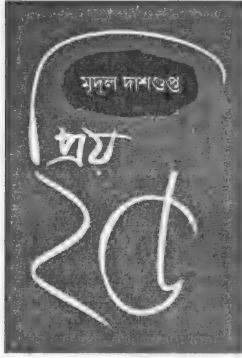 মৃদুল দাশগুপ্ত
প্রিয়
২৫